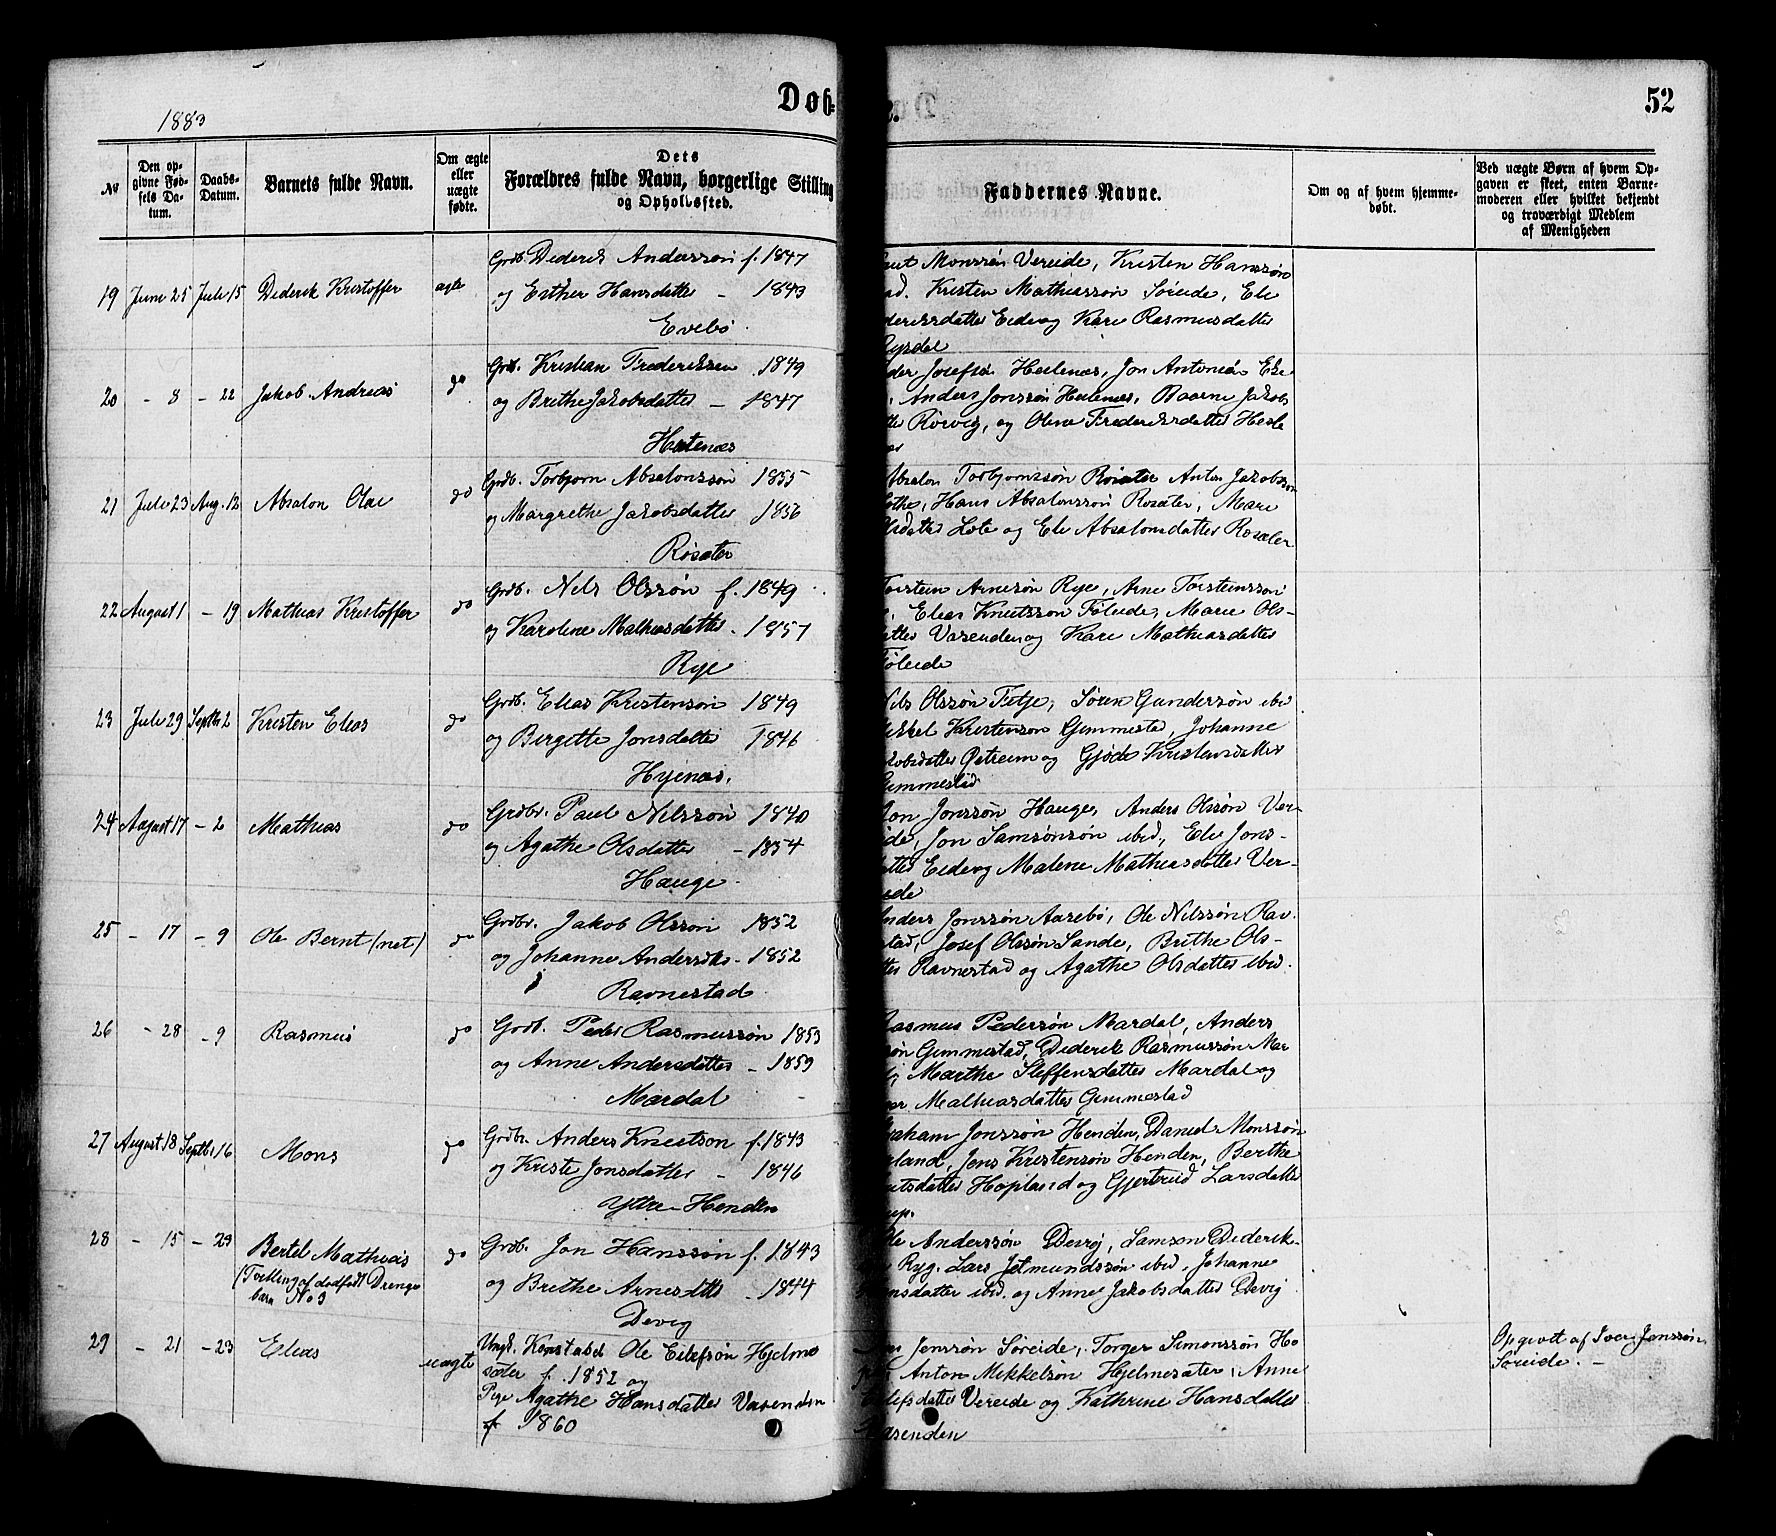 1883
Døb:
52
No
Den opgivne Fødsels Datum.
Daabs-Datum.
Barnets fulde Navn.
Om ægte eller uægte fødte.
Dets Forældres fulde Navn, borgerlige Stilling og Opholdssted.
Faddernes Navne.
Om og af hvem hjemmedøbt.
Ved uægte Børn af hvem Opgaven er skeet, enten Barnemoderen eller hvilket bekjendt og troværdigt Medlem af Menigheden
19 Juni 25 Juli 15 Diderik Kristoffer ægte
Grdb. Diderik Anderssøn f. 1847
og Esther Hansdatter - 1843
Evebø
Monssøn Vereide, Kristen Hanssøn
Kristen Mathiassøn Søreide, Eli
Eide og Kari Rasmusdatter
20 - 8 - 22 Jakob Andreas do
Grdb. Kristian Frederikssen 1849
og Brithe Jakobsdatter - 1847
Hestenæs
Josefsøn Hestenæs, Jon Antonsøn Eke
Anders Jonssøn Hestenæs, Jakobs
Rørvig, og Oline Frederiksdatter Heste
21 Juli 23 Aug. 12 Absalon Olai do
Grdb. Torbjørn Absalonssøn 1855
og Margrethe Jakobsdatter 1856
Røsæter
Absalon Torbjørnssøn Røsæter Anton Jakobssøn
Hans Absalonssøn Rosæter, Mari
Lote og Eli Absalonsdatter Rosæter
22 August 1 - 19 Mathias Kristoffer do
Grdb. Nils Olssøn f. 1849
og Karoline Mathiasdatter - 1857
Rye
Torstein Arnesøn Rye, Arne Torsteinssøn
Elias Knutssøn Føleide, Marie Ols-
Vasenden og Kari Mathiasdatter
Føleide
23 Juli 29 Septbr 2 Kristen Elias do
Grdb. Elias Kristensøn 1849
og Birgitte Jonsdatter 1846
Hyenæs.
Nils Olssøn Tetje, Søren Gunderssøn ibid
Kristenson Gimmestad, Johanne
og Gjøde Kristensdatter
Gimmestad
24 August 17 - 2 Mathias do
Grdbr. Paul Nilssøn 1840
og Agathe Olsdatter - 1854
Hauge
Jon Jonssøn Hauge, Anders Olssøn Ver-
Jon Samsonsøn ibid., Eli Jons-
Eide og Malene Mathiasdatter Ver-
25 - 17 - 9 Ole Bernt (net) do
Grdbr. Jakob Olsson 1852
og Johanne Andersdtr - 1852
Ravnestad
Anders Jonssøn Aarebø, Ole Nilssøn Rav.
stad, Josef Olssøn Sande, Brithe Ols-
Ravnestad og Agathe Olsdatter ibid.
26 - 28 - 9 Rasmus do
Grdb. Peder Rasmussøn 1853
og Anne Andersdatter - 1859
Mardal
Rasmus Pederssøn Mardal, Anders
Gimmestad, Diderik Rasmussøn Mar
Marthe Steffensdatter Mardal og
Mathiasdatter Gimmestad
27 August 18 Septbr 16 Mons do
Grdbr. Anders Knutson f. 1843
og Kristi Jonsdatter - 1846
Yttre-Henden
Jonssøn Henden, Daniel Monssøn
Jens Kristensøn Henden, Berthe
Hopland og Gjertrud Larsdatter
28 - 15 - 23 Bertel Mathias do
(Tvilling af dødfødt Drenge
barn No 3
Grdb. Jon Hanssøn f. 1843
og Brithe Arnesdtr - 1844
Devig
Ole Anderssøn Devig, Samson Diderik-
Ryg. Lars Jetmundssøn ibid, Johanne
ibid. og Anne Jakobsdatter Devig
29 - 21 - 23 Elias uægte
Ungk. Konstabel Ole Eilefsøn Hjelme
sæter f. 1852 og
Pige Agathe Hansdatter Vasenden
f 1860
Jonssøn Søreide, Torger Simonssøn Ho
Anton Mikkelsøn Hjelmesæter, Anne
Vereide og Kathrine Hansdatter
Vasenden
Opgivet af Iver Jonssøn
Søreide. -